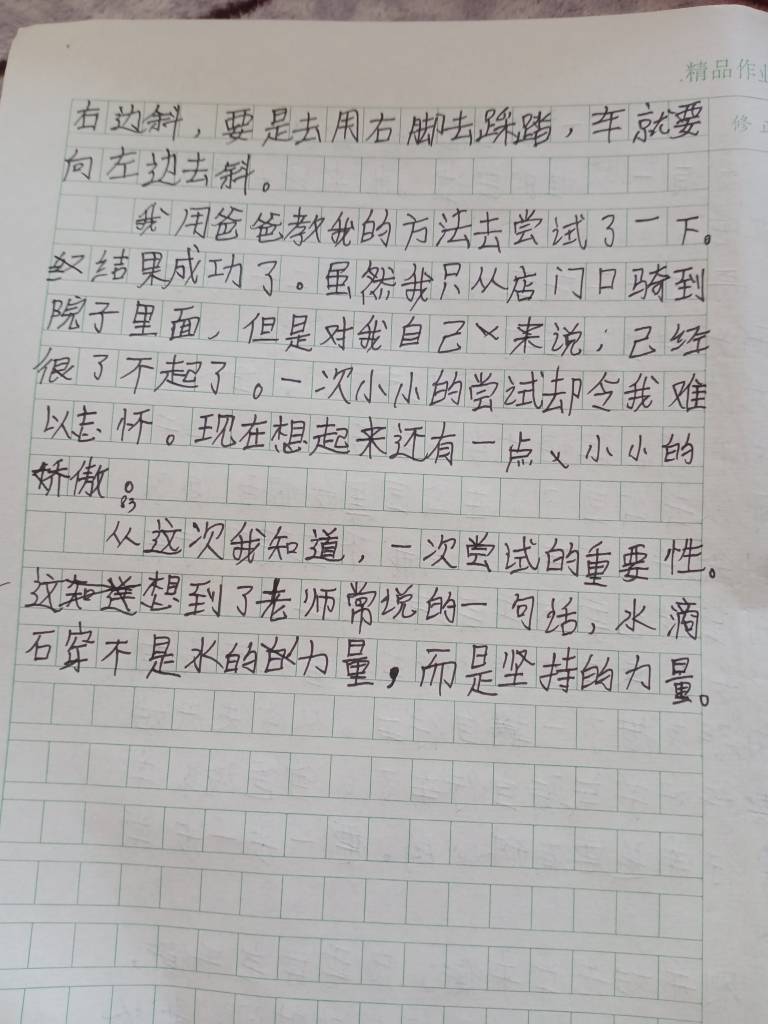 精品作业
修正
右边斜，要是去用右脚去踩踏，车就要
向左边去斜。
我用爸爸教我的方法去尝试了一下。
结果成功了。虽然我只从店门口骑到
院子里面，但是对我自己来说；已经
很了不起了。一次小小的尝试却令我难
以忘怀。现在想起来还有一点小小的
娇傲。
从这次我知道，一次尝试的重要性。
这想到了老师常说的一句话，水滴
石穿不是水的力量，而是坚持的力量。